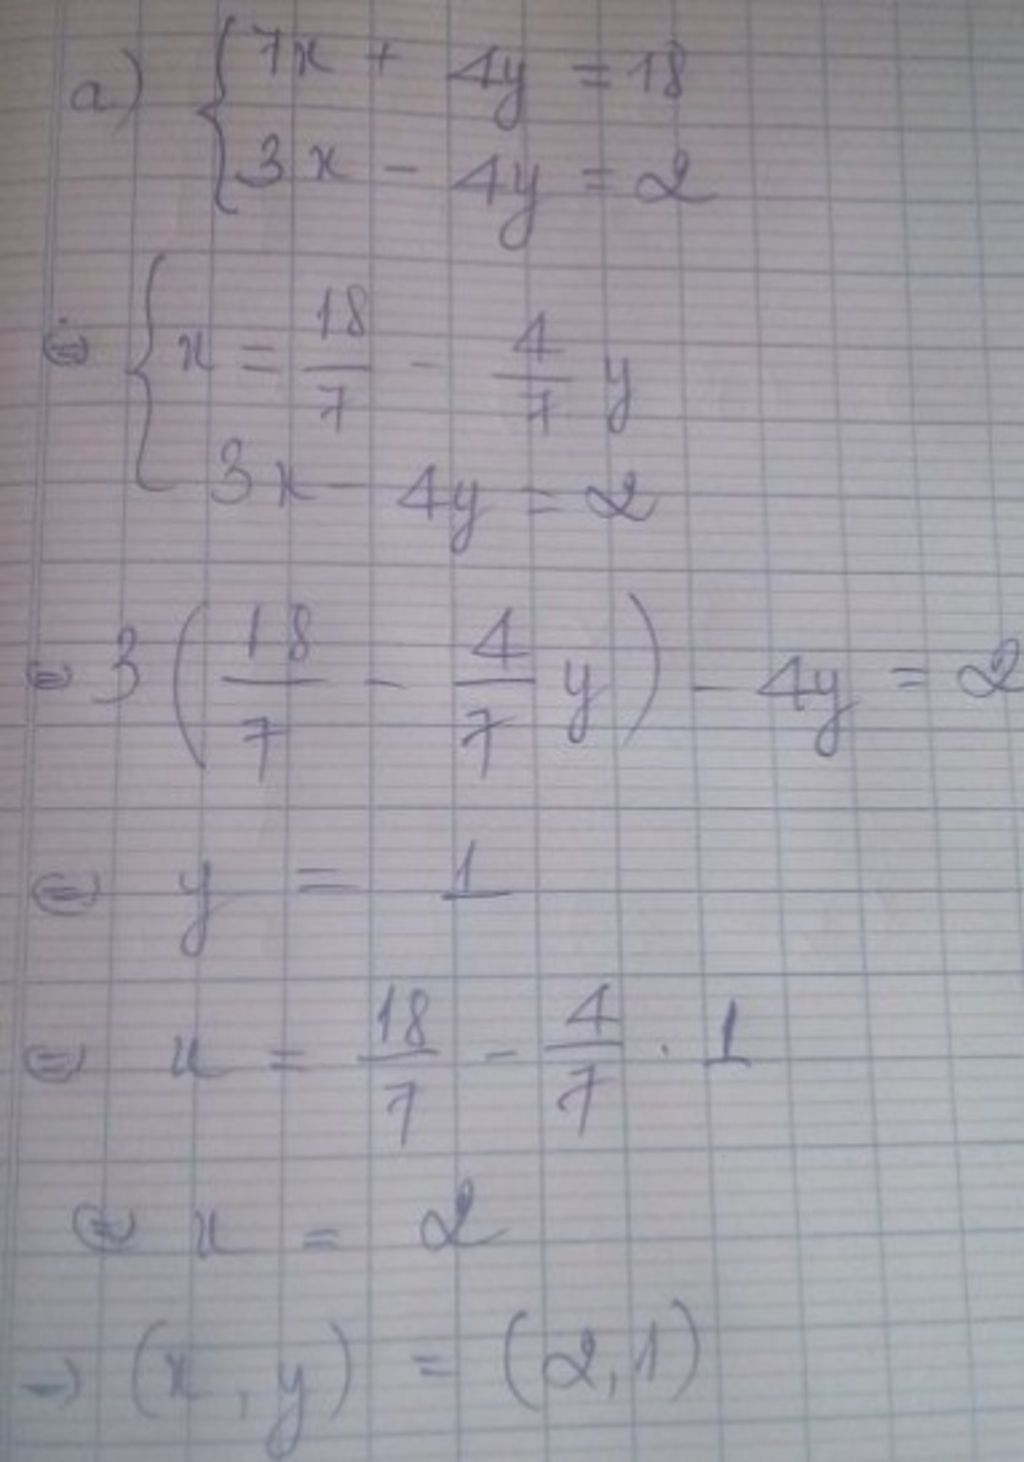 a) { 7x + 4y = 18
3x - 4y = 2
⇔ { x = 18/7 - 4/7 y
3x - 4y = 2
⇔ 3 ( 18/7 - 4/7 y ) - 4y = 2
⇔ y = 1
⇔ x = 18/7 - 4/7 . 1
⇔ x = 2
→ (x, y) = (2, 1)